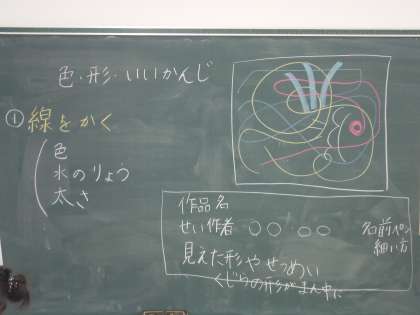 色・形・いいかんじ
①線をかく
色
水のりょう
太さ
作品名
せい作者 ○○・○○
名前ペン
細い方
見えた形やせつめい
くじらの形がまん中に